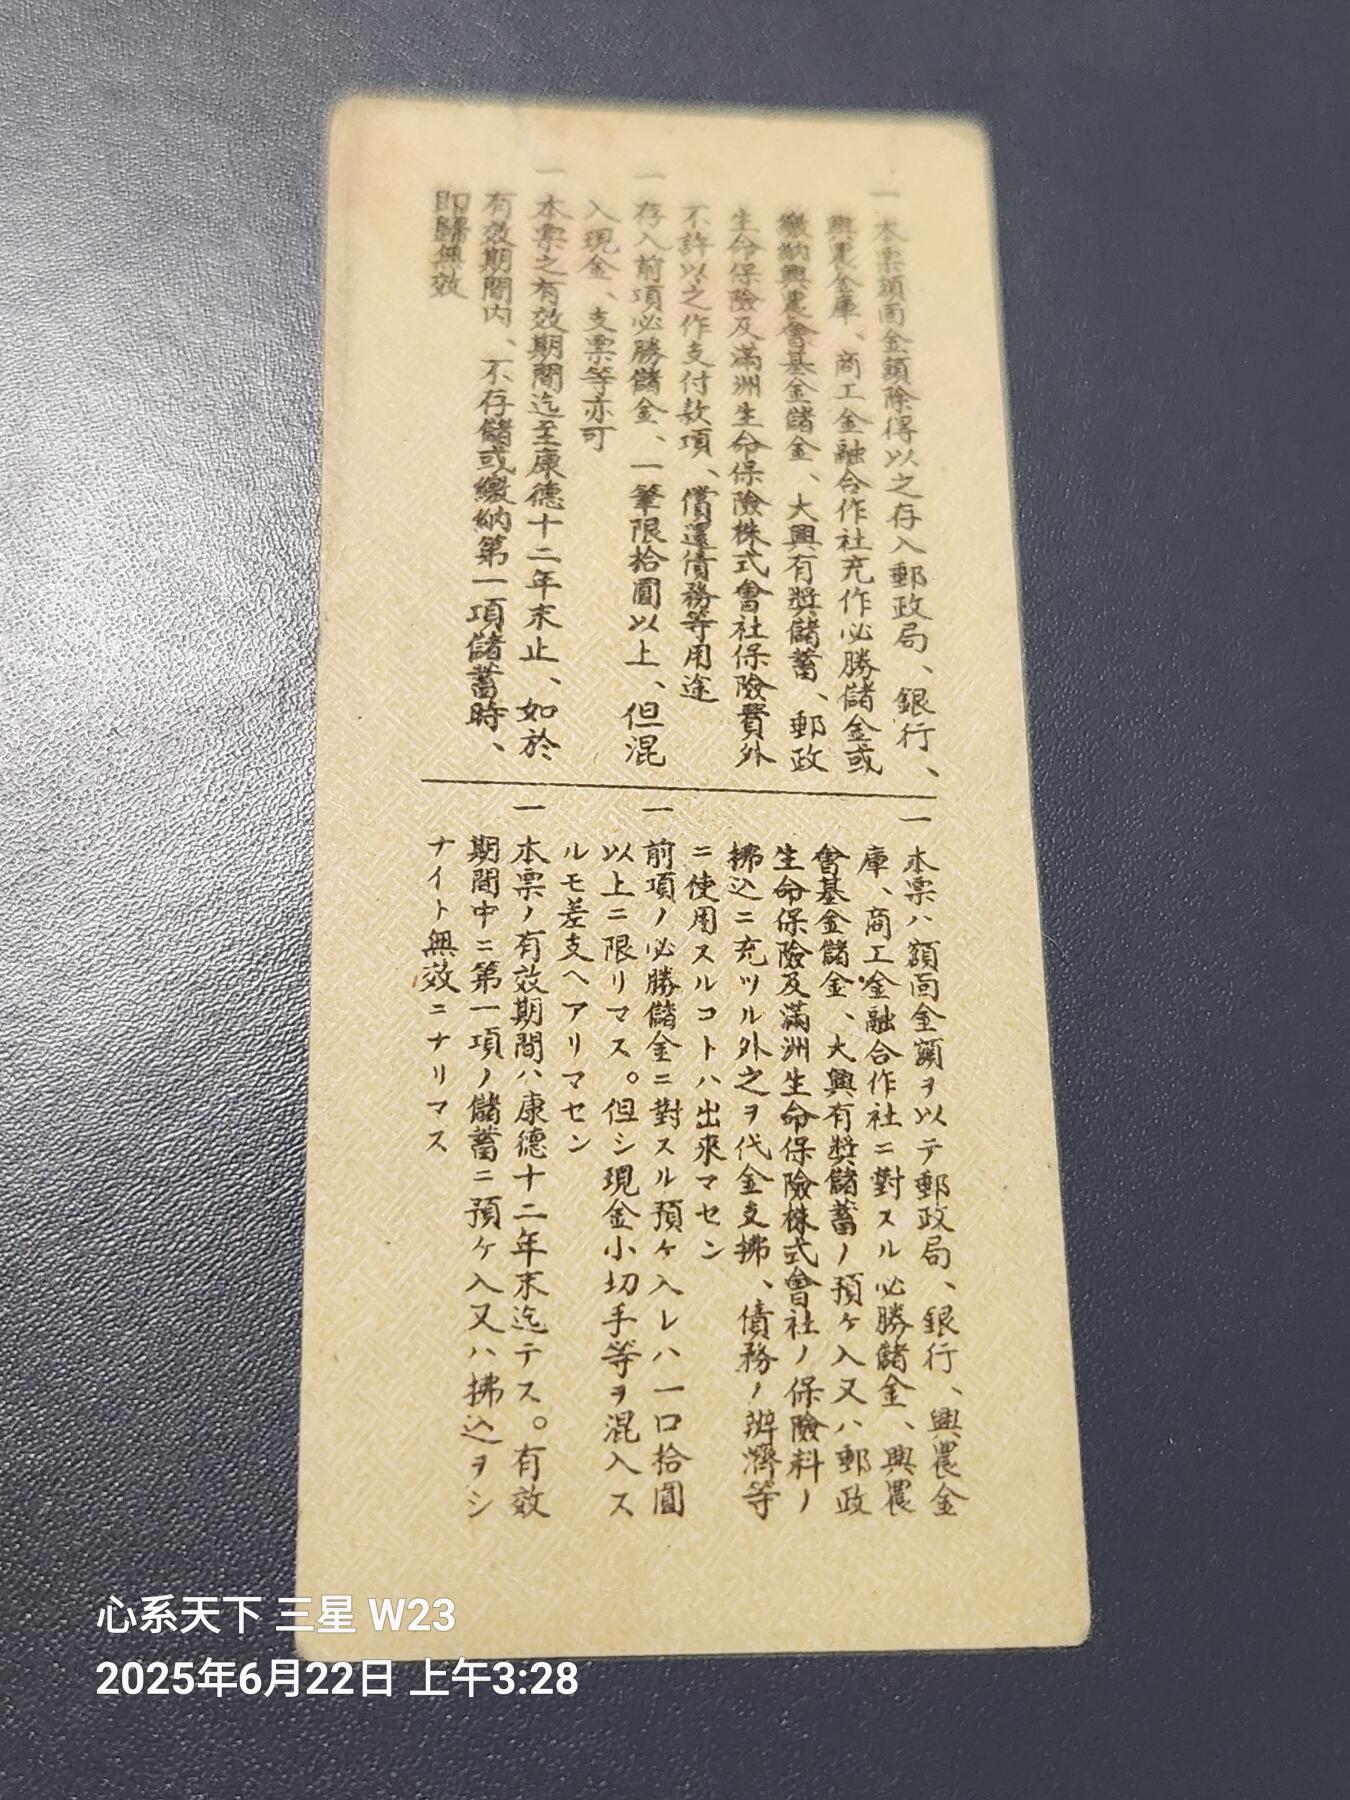 一 本票額面金額除得以之存入郵政局、銀行、
興農金庫、商工金融合作社充作必勝儲金或
繳納興農會基金儲金、大興有獎儲蓄、郵政
生命保險及滿洲生命保險株式會社保險費外
不許以之作支付款項、償還債務等用途
一 存入前項必勝儲金、一筆限拾圓以上、但混
入現金、支票等亦可
一 本票之有效期間迄至康德十二年末止、如於
有效期間内、不存儲或繳納第一項儲蓄時、
即歸無效
一 本票ハ額面金額ヲ以テ郵政局、銀行、興農金
庫、商工金融合作社ニ對スル必勝儲金、興農
會基金儲金、大興有獎儲蓄ノ預ケ入又ハ郵政
生命保險及滿洲生命保險株式會社ノ保險料ノ
拂込ニ充ツル外之ヲ代金支拂、債務ノ辨濟等
ニ使用スルコトハ出來マセン
一 前項ノ必勝儲金ニ對スル預ケ入レハ一口拾圓
以上ニ限リマス。但シ現金小切手等ヲ混入ス
ルモ差支ヘアリマセン
一 本票ノ有效期間ハ康德十二年末迄テス。有效
期間中ニ第一項ノ儲蓄ニ預ケ入又ハ拂込ヲシ
ナイト無效ニナリマス
心系天下 三星 W23
2025年6月22日 上午3:28